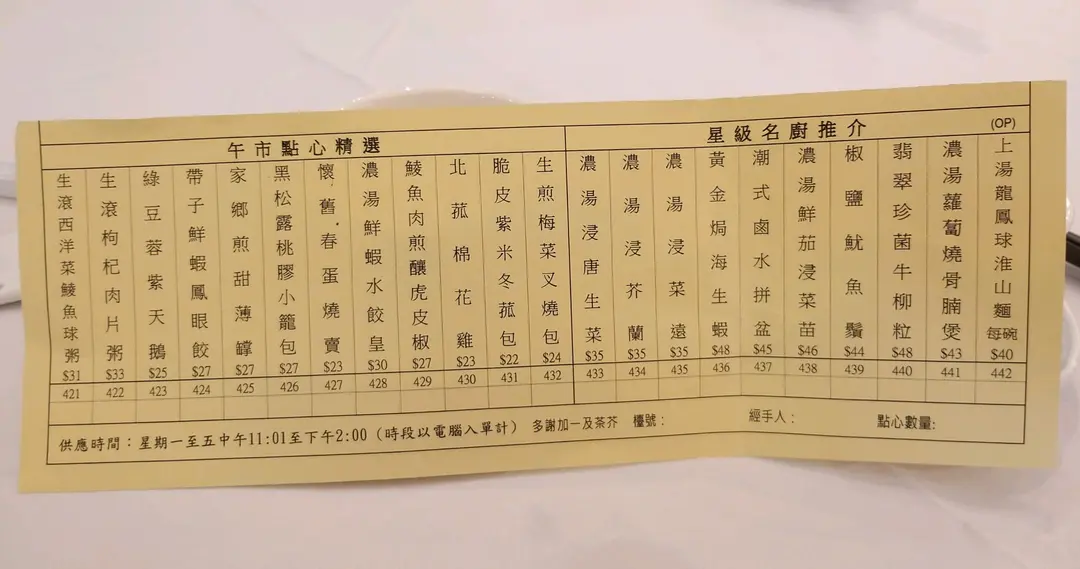 午市點心精選
生滾西洋菜鯪魚球粥 $31 421
生滾枸杞肉片粥 $33 422
綠豆蓉紫天鵝 $25 423
帶子鮮蝦鳳眼餃 $27 424
家鄉煎甜薄罉 $27 425
黑松露桃膠小籠包 $27 426
懷舊春蛋燒賣 $23 427
濃湯鮮蝦水餃皇 $30 428
鯪魚肉煎釀虎皮椒 $27 429
北菰棉花雞 $23 430
脆皮紫米冬菰包 $22 431
生煎梅菜叉燒包 $24 432
星級名廚推介
(OP)
濃湯浸唐生菜 $35 433
濃湯浸芥蘭 $35 434
濃湯浸菜遠 $35 435
黃金焗海生蝦 $48 436
潮式鹵水拼盆 $45 437
濃湯鮮茄浸菜苗 $46 438
椒鹽魷魚鬚 $44 439
翡翠珍菌牛柳粒 $48 440
濃湯蘿蔔燒骨腩煲 $43 441
上湯龍鳳球淮山麵 每碗 $40 442
供應時間：星期一至五中午11:01至下午2:00（時段以電腦入單計） 多謝加一及茶芥 檯號： 經手人： 點心數量: